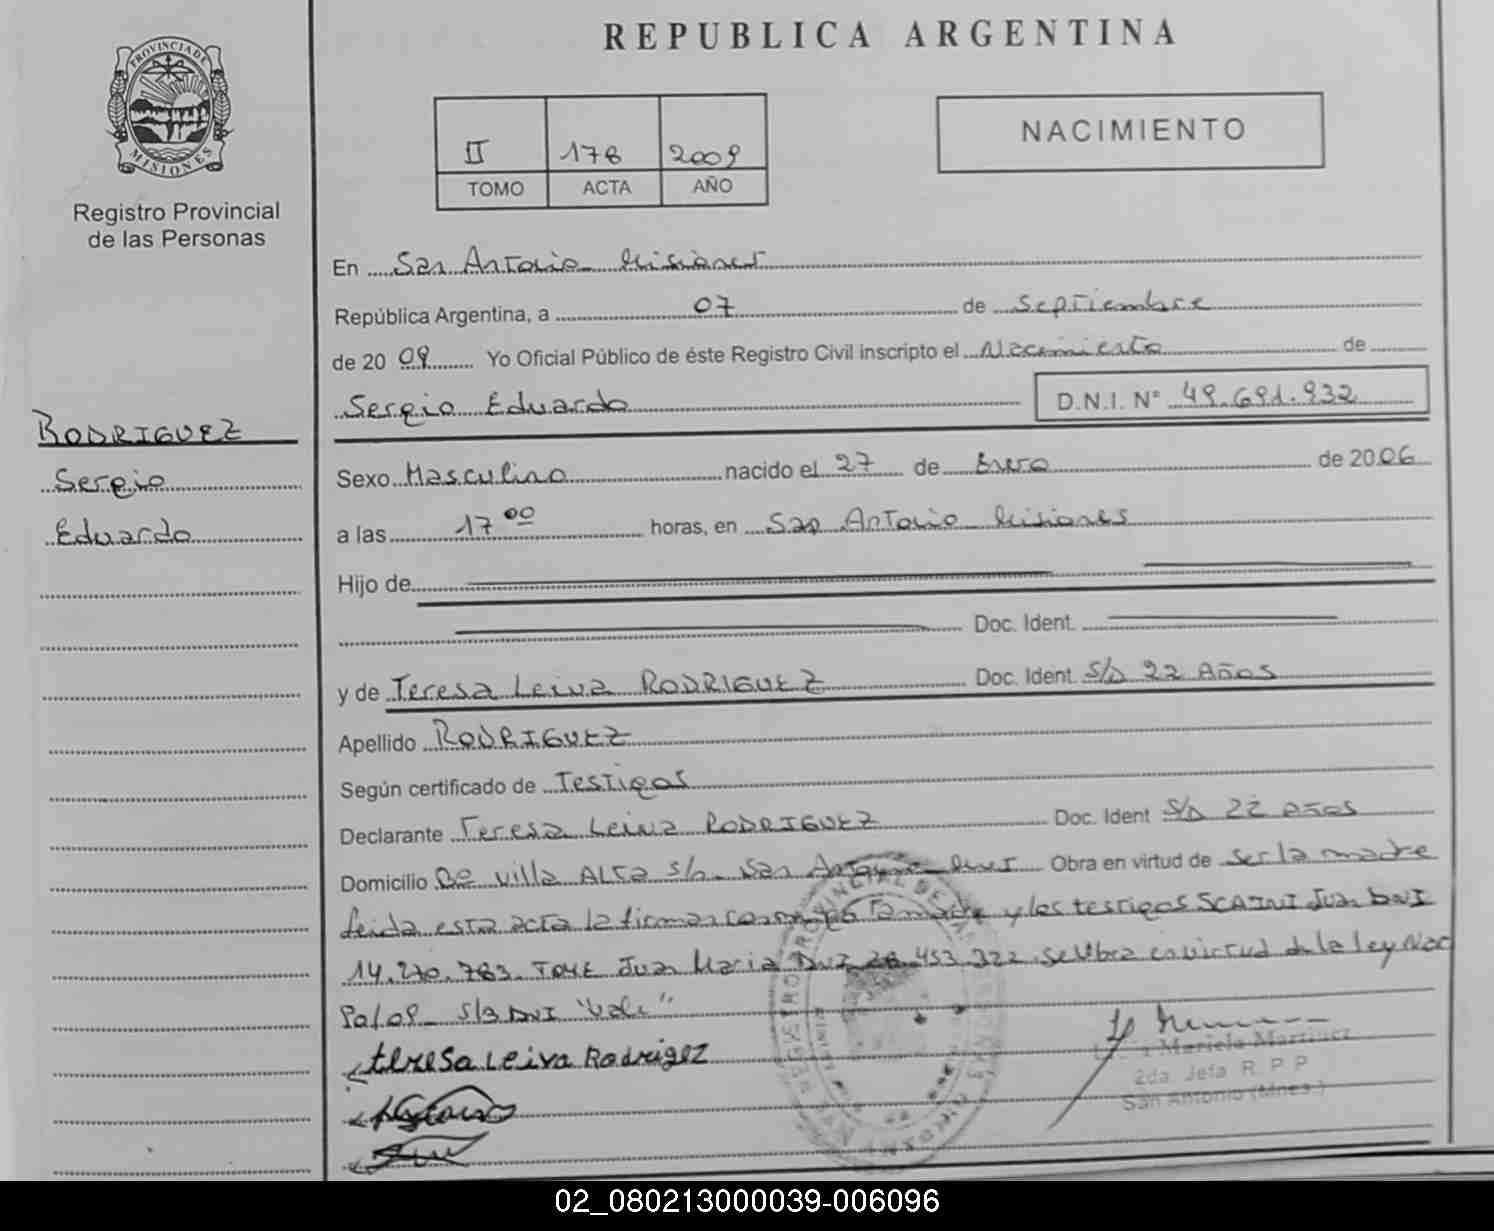 REPUBLICA ARGENTINA
PROVINCIA DE
MISIONES
Registro Provincial
de las Personas
II 178 2009
TOMO ACTA AÑO
NACIMIENTO
RODRIGUEZ
Sergio
Eduardo
En San Antonio Misiones
República Argentina, a 07 de Septiembre
de 20 09 Yo Oficial Público de éste Registro Civil inscripto el Nacimiento de
Sergio Eduardo D.N.I. N° 49.691.932
Sexo Masculino nacido el 27 de Enero de 2006
a las 17 00 horas, en San Antonio Misiones
Hijo de
Doc. Ident.
y de Teresa Leiva RODRIGUEZ Doc. Ident. S/D 22 Años
Apellido RODRIGUEZ
Según certificado de Testigos
Declarante Teresa Leiva RODRIGUEZ Doc. Ident S/D 22 Años
Domicilio Bo Villa ALTA s/n San Antonio Obra en virtud de ser la madre
leida esta acta la firman la madre y los testigos Juan DNI
14.270.783. Juan Maria DNI 28.453.322 se labra en virtud de la ley Nac
S/3 DNI "Vale"
teresa Leiva Rodrigez
Mariela Martinez
2da. Jefa R. P. P
San Antonio (Mnes.)
02_080213000039-006096